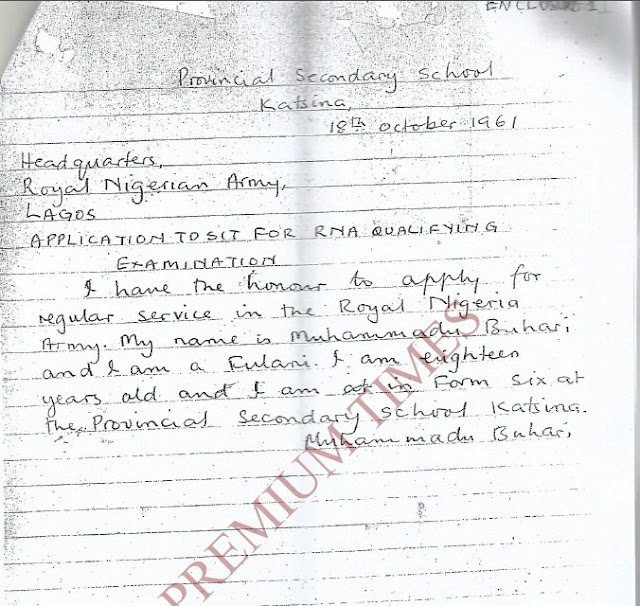 ENCLOSURE 1
Provincial Secondary School
Katsina,
18th October 1961
Headquarters,
Royal Nigerian Army,
LAGOS
APPLICATION TO SIT FOR RNA QUALIFYING
EXAMINATION
I have the honour to apply for
regular service in the Royal Nigeria
Army. My name is Muhammadu Buhari
and I am a Fulani. I am eighteen
years old and I am at in Form Six at
the Provincial Secondary School Katsina.
Muhammadu Buhari,
PREMIUM TIMES